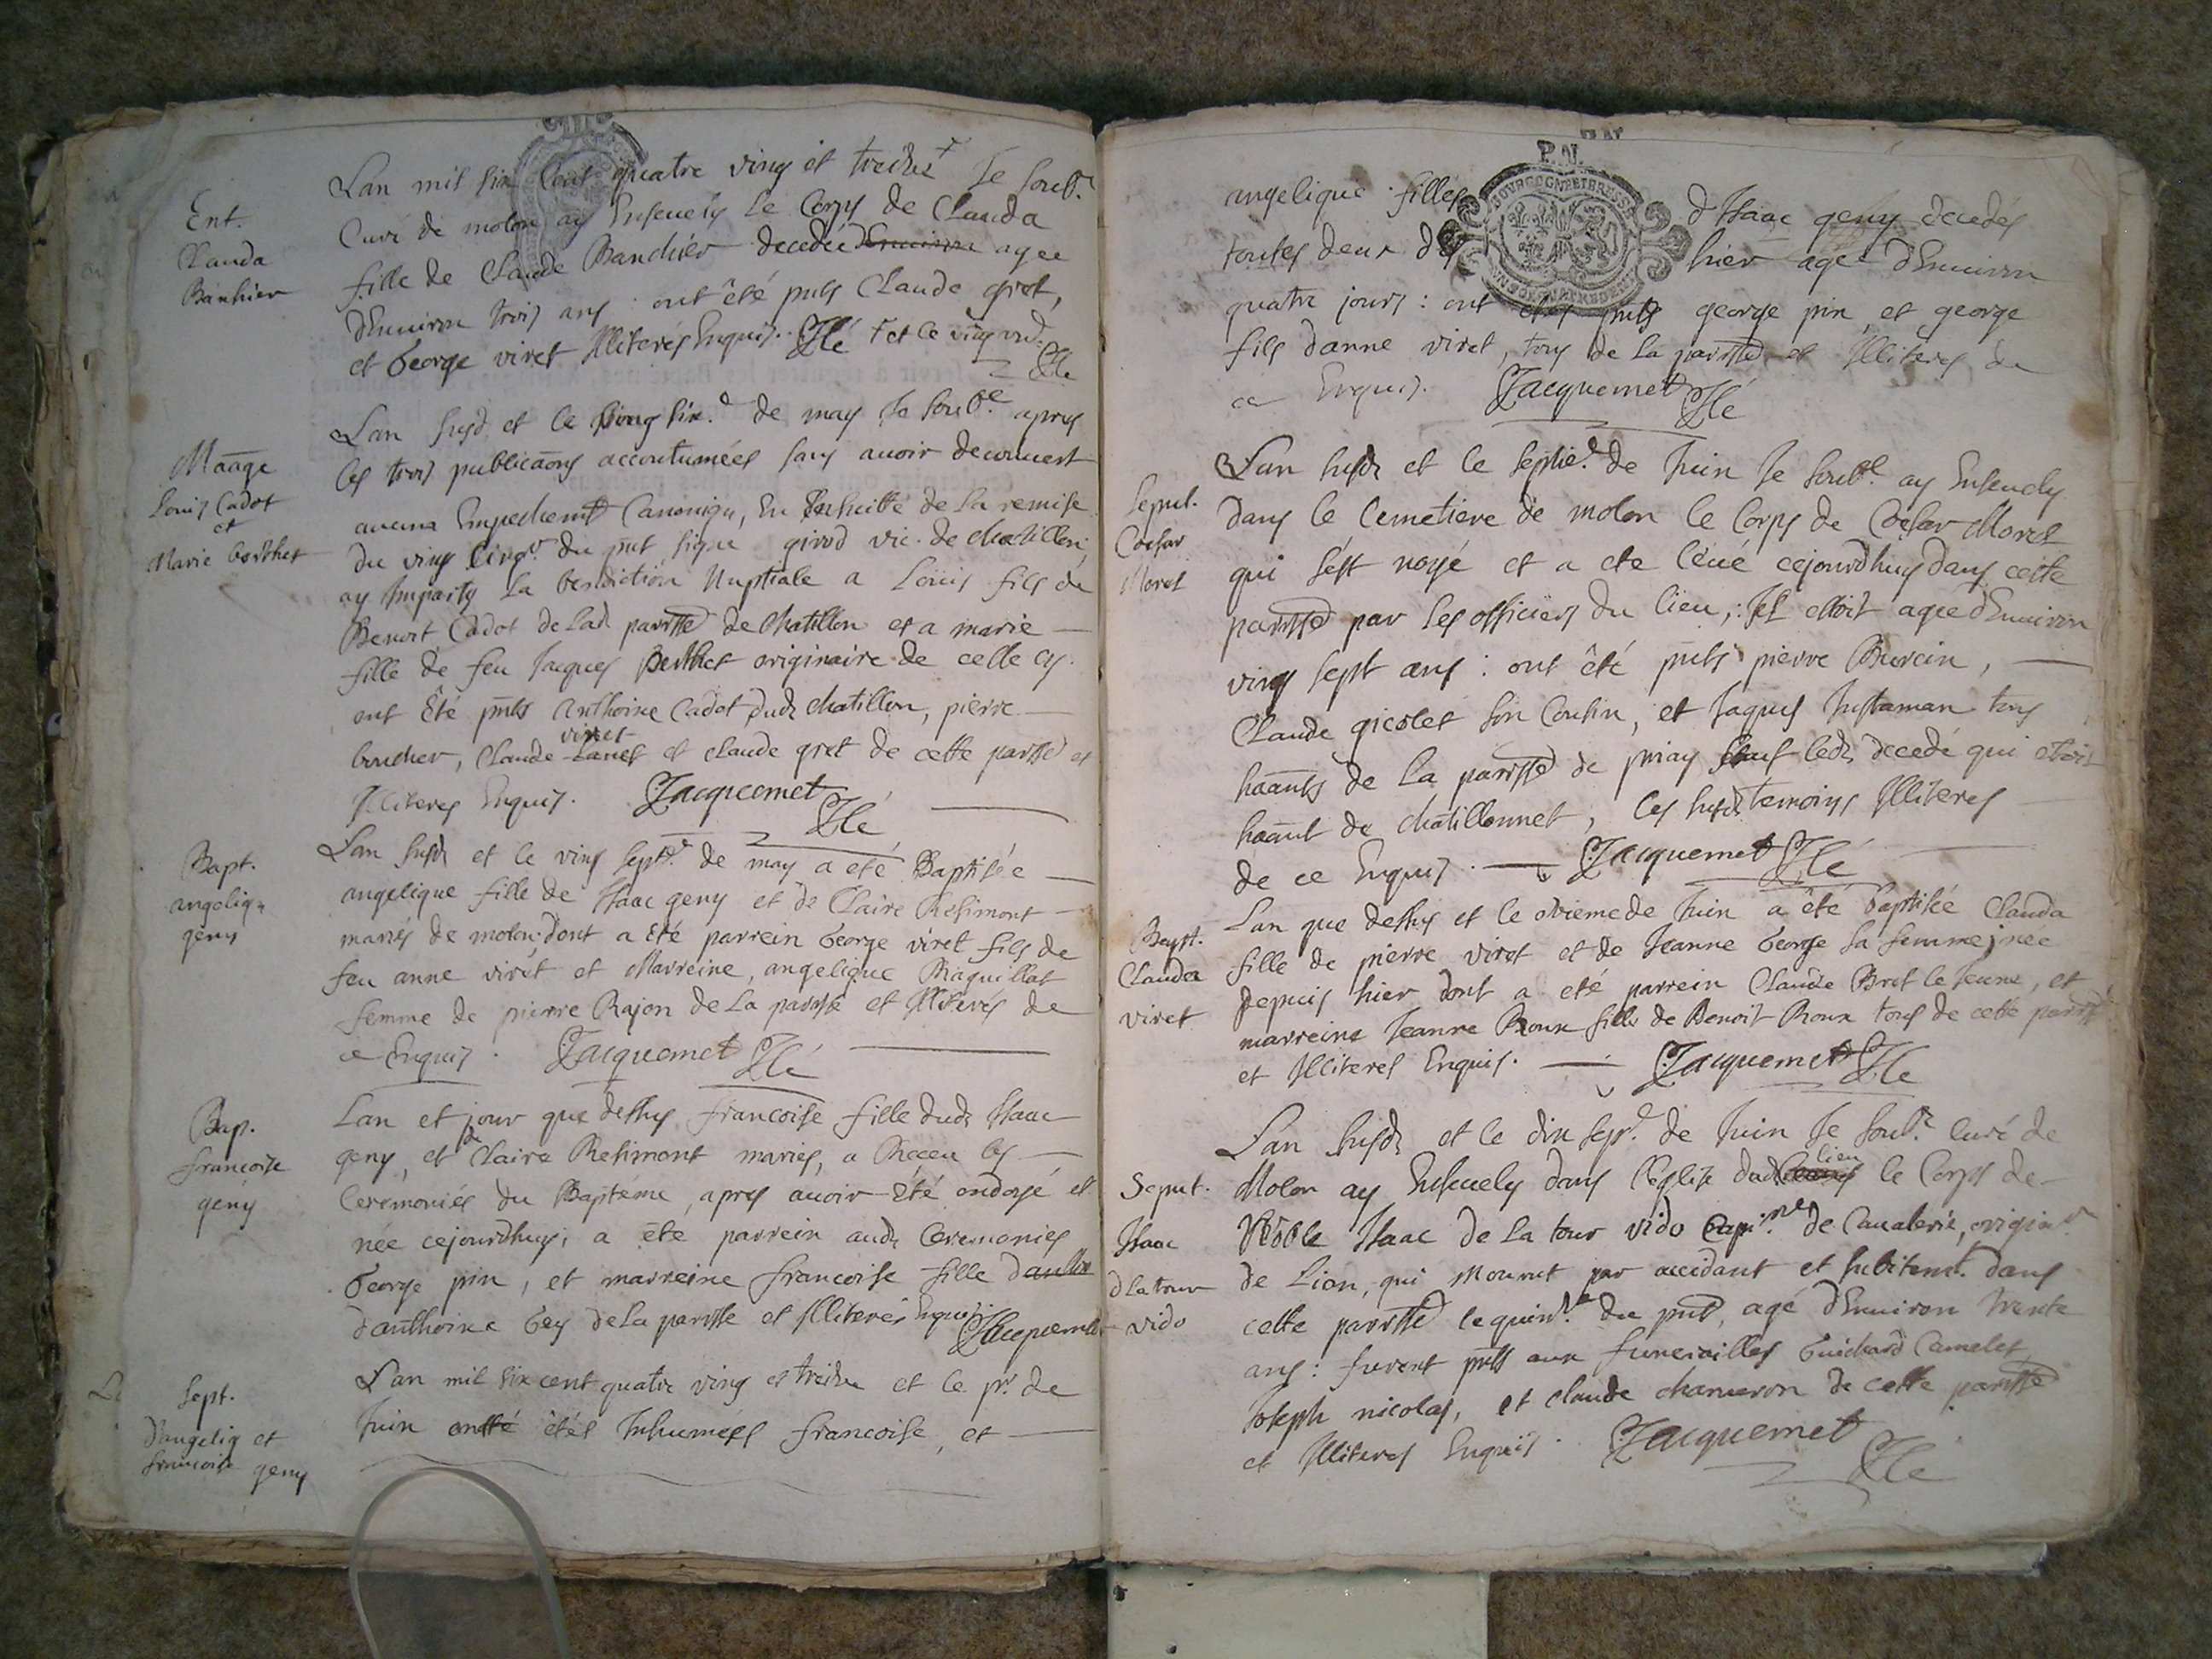 Ent.
Clauda
Banchier
Lan mil six Cent quatre ving et treize + Je soub.e
Curé de molon ay Ensevely Le Corps de Clauda
fille de Claude Banchier decedée d'Environ agee
d'Environ trois ans : ont été pnts Claude gret,
et George viret Illiterés Enquis. Jté + et le ving
Maage
Louis Cadot
et
Marie berthet
Lan susd. et le ving six.e de may Je soub.e apres
les trois publicaons accoutumées sans avoir decouvert
aucuns Empechemt Canoniqu, En suitte de La remise
du ving cinq.e du pnt signé girod vic. de chatillon,
ay Imparty La benediction Nuptiale a Loüis fils de
Benoit Cadot de lad. parrsse de Chatillon et a marie
fille de feu Jaques Berthet originaire de celle cy
ont Été pnts Anthoine Cadot dud. chatillon, pierre
boucher, Claude viret et claude gret de cette parrsse et
Illiteres Enquis. Jacquemet
Bapt.
angeliq.
geny
Lan susd. et le ving sept.e de may a eté Baptisée
angelique fille de Isaac geny et de Claire Resimont
mariés de molon dont a Eté parrein George viret fils de
feu anne viret et Marreine, angelique Maquillat
femme de pierre Rajon de La parrsse et Illiterés de
ce Enquis. Jacquemet
Bap.
francoise
geny
Lan et jour que dessus francoise fille dud. Isaac
geny, et de Claire Resimont mariés, a Receu les
Ceremonies du Baptéme, apres avoir Eté ondoyé et
née cejourdhuy, a eté parrein aud. Ceremonies
George pin, et marreine francoise fille
d'anthoine Gey de La parrsse et Illiterés Enquis. Jacquemet
Sept.
d'angeliq et
francoise geny
Lan mil six cent quatre ving et treize et le pr. de
Juin ont étés Inhumees francoise, et
angelique filles d'Isaac geny decedés
toutes deux hier agé d'Environ
quatre jours : ont etes pnts george pin, et george
fils d'anne viret, tous de La parrsse et Illiteres de
ce Enquis. Jacquemet
Sepul.
Coesar
Morel
Lan susd. et le septie.e de Juin Je soub.e ay Ensevely
dans le Cemetiere de molon le Corps de Coesar Morel
qui sést noyé et a ete léué cejourdhuy dans cette
parrsse par les officiers du lieu, Jl estoit agee d'Environ
ving sept ans : ont été pnts pierre Burcin,
Claude gicolet son Cousin, et Jaques Justaman tous
haants de La parrsse de priay sauf led. decedé qui etoit
haant de chatillonnet, les susd. temoins Illiteres
de ce Enquis. Jacquemet
Bapt.
Clauda
viret
Lan que dessus et le ozieme de Juin a été baptisée Clauda
fille de pierre viret et de Jeanne George sa femme, née
depuis hier dont a eté parrein Claude Bret le Jeune, et
marreine Jeanne Roux fille de Benoit Roux tous de cette parrsse
et Illiteres Enquis. Jacquemet
Sepul.
Isaac
d la tour
vido
Lan susd. et le dix sept.e de Juin Je soub.e Curé de
Molon ay Ensevely dans l'Eglise dud. lieu le Corps de
Noble Isaac de La tour vido Capi.ne de Cavalerie, origin.e
de Lion, qui Mourut par accidant et subitemt. dans
cette parrsse le quinz.e du pnt, agé d'Environ trente
ans : furent pnts aux funerailles Guichard Camelet
Joseph nicolas, et claude chaneron de cette parrsse
et Illiteres Enquis. Jacquemet